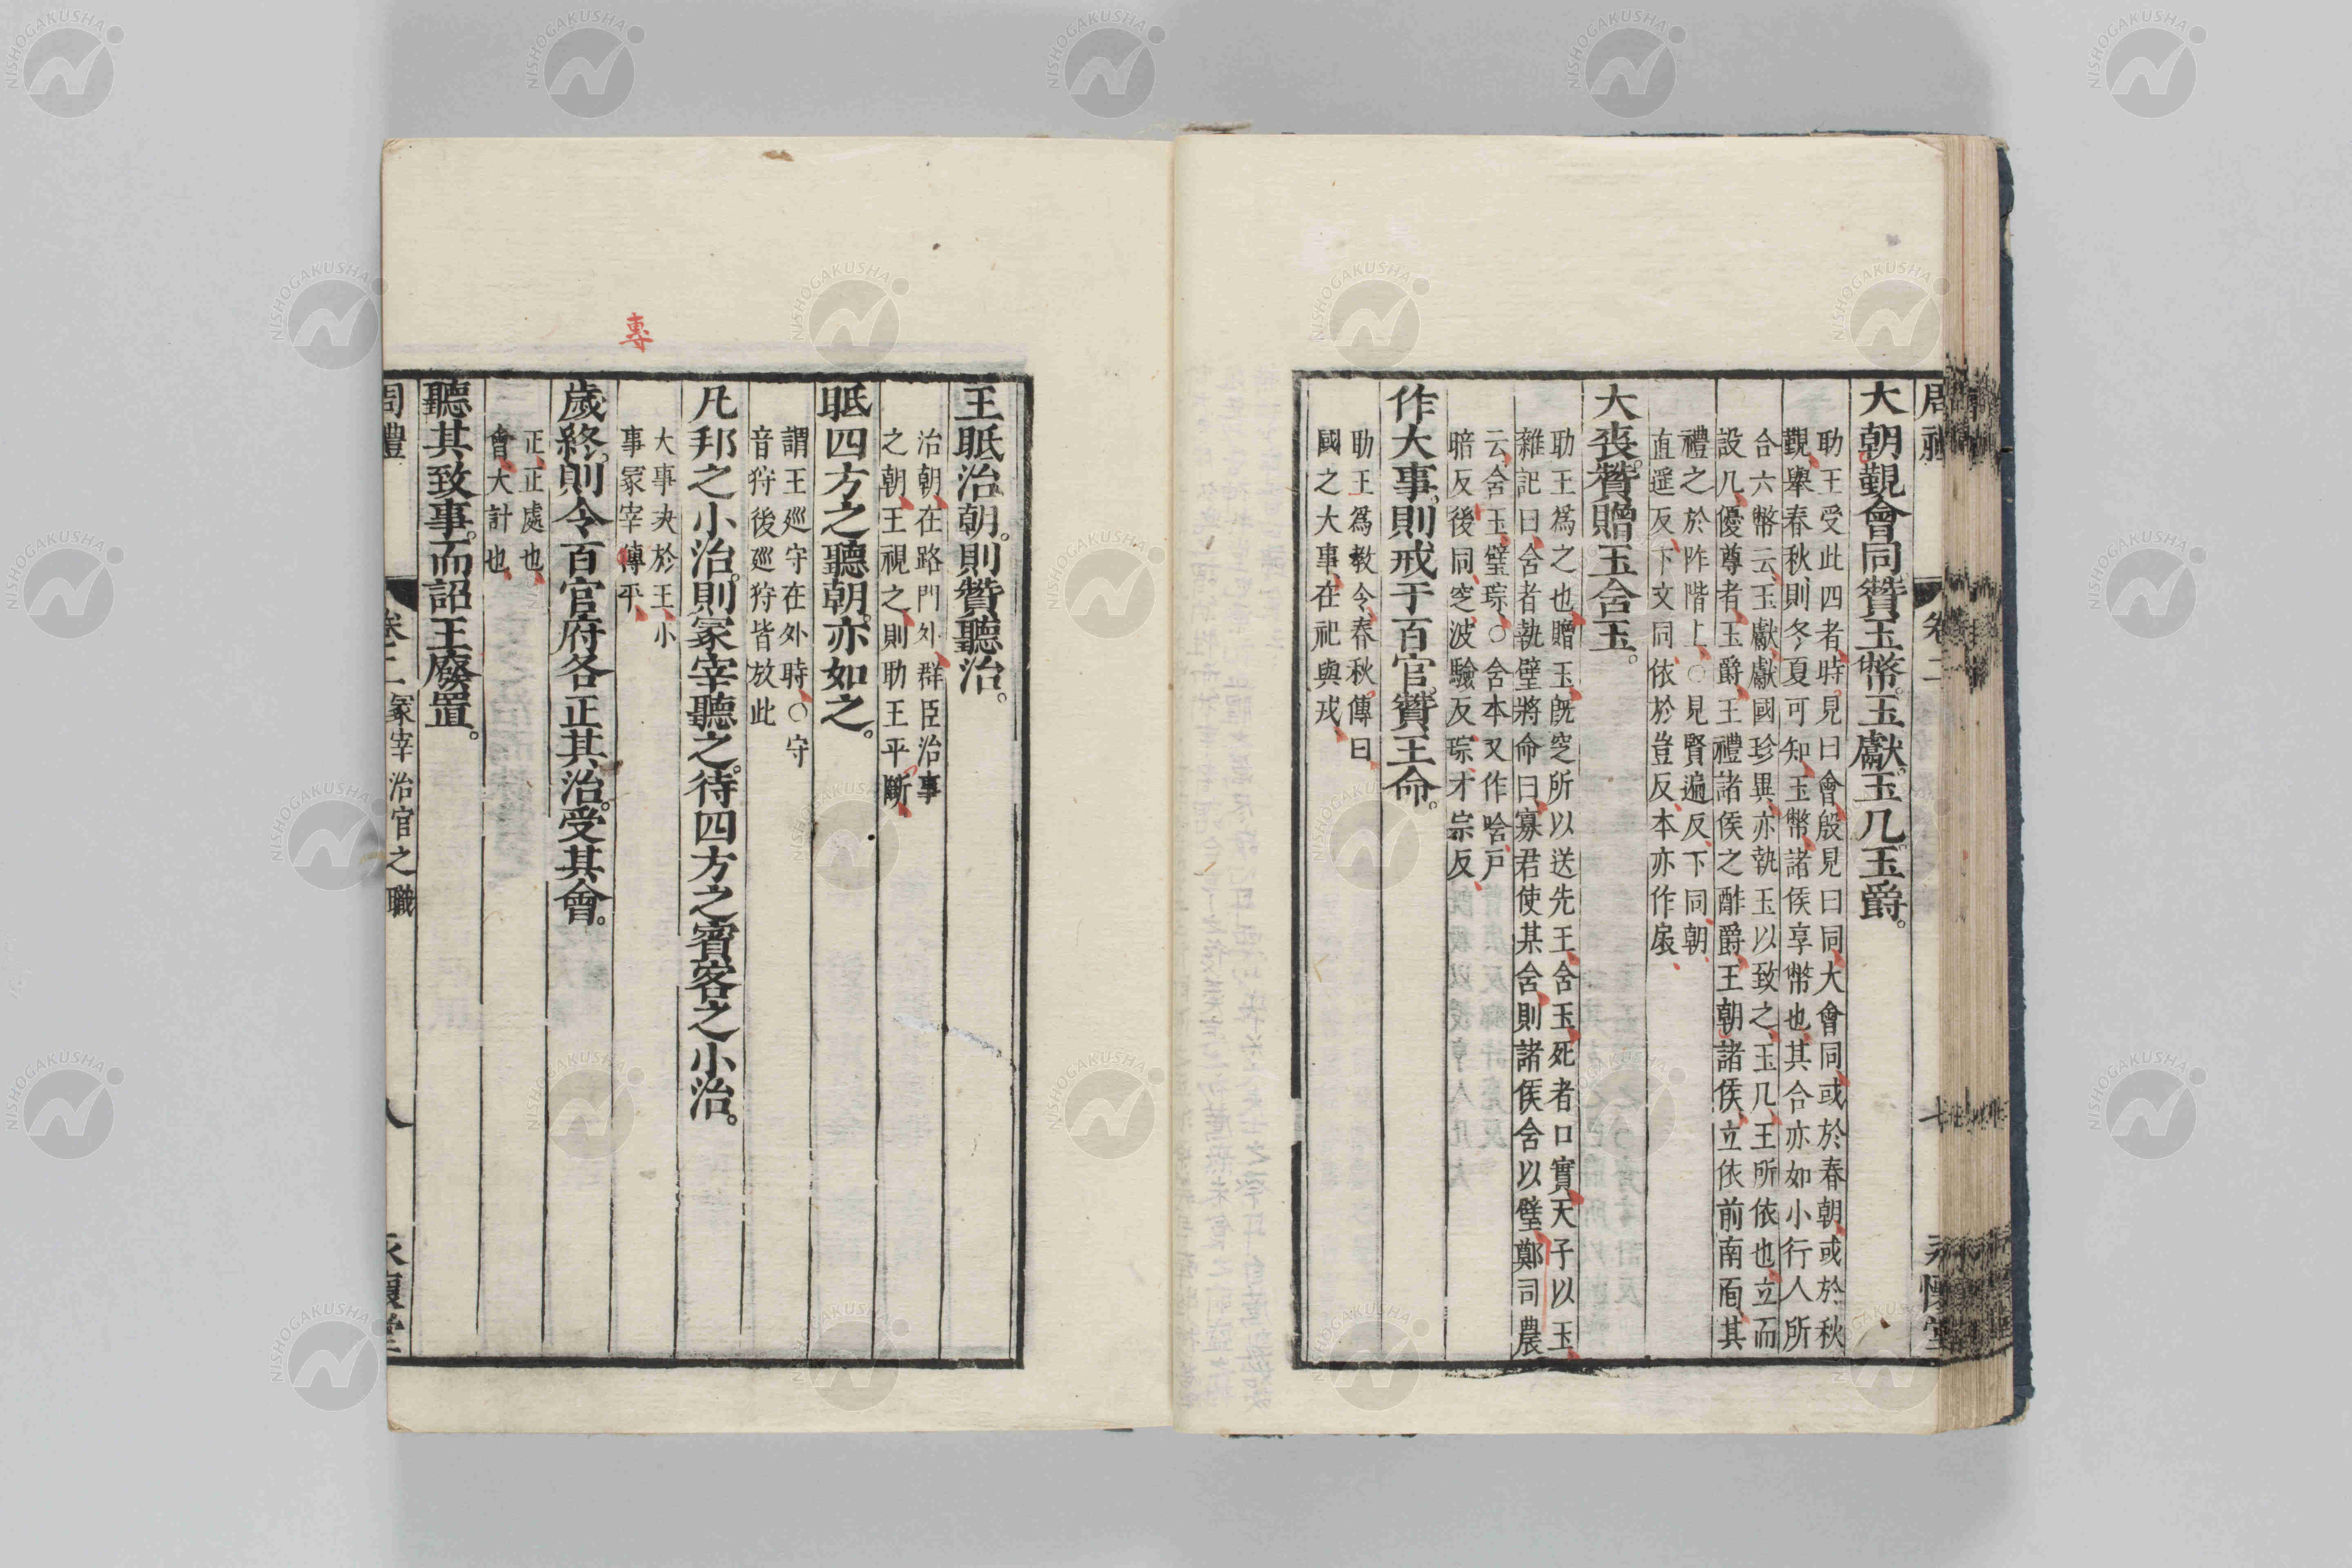 周禮 卷二 七 永懷堂
大朝覲會同贊玉幣玉獻玉几玉爵。
助王受此四者時見曰會殷見曰同大會同或於春朝或於秋
覲舉春秋則冬夏可知玉幣諸侯享幣也其合亦如小行人所
合六幣云玉獻獻國珍異亦執玉以致之玉几王所依也立而
設几優尊者玉爵王禮諸侯之酢爵王朝諸侯立依前南面其
禮之於阼階上○見賢遍反下同朝
直遥反下文同依於豈反本亦作扆
大喪贊贈玉含玉。
助王爲之也贈玉旣窆所以送先王含玉死者口實天子以玉
雜記曰含者執璧將命曰寡君使某含則諸侯含以璧鄭司農
云含玉璧琮○含本又作唅戸
暗反後同窆波驗反琮才宗反
作大事則戒于百官贊王命。
助王爲敎令春秋傳曰
國之大事在祀與戎
王眡治朝。則贊聽治。
治朝在路門外群臣治事
之朝王視之則助王平斷
眡四方之聽朝亦如之。
謂王廵守在外時○守
音狩後廵狩皆放此
凡邦之小治則冢宰聽之待四方之賓客之小治。
大事决於王小
事冢宰傳平
專
歲終則令百官府各正其治受其會。
正正處也
會大計也
聽其致事。而詔王廢置。
周禮 卷二 冢宰治官之職 八 永懷堂